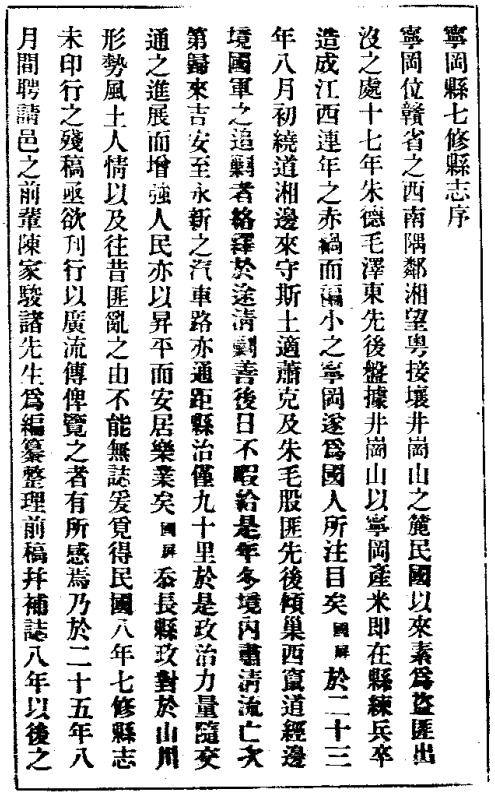 寧岡縣七修縣志序
寧岡位贛省之西南隅鄰湘望粵接壤井崗山之麓民國以來素爲盜匪出
沒之處十七年朱德毛澤東先後盤據井崗山以寧岡產米即在縣練兵卒
造成江西連年之赤禍而褊小之寧岡遂爲國人所注目矣國屏於二十三
年八月初繞道湘邊來守斯土適蕭克及朱毛股匪先後傾巢西竄道經邊
境國軍之追剿者絡繹於途清剿善後日不暇給是年冬境內肅清流亡次
第歸來吉安至永新之汽車路亦通距縣治僅九十里於是政治力量隨交
通之進展而增強人民亦以昇平而安居樂業矣國屏忝長縣政對於山川
形勢風土人情以及往昔匪亂之由不能無誌爰覓得民國八年七修縣志
未印行之殘稿亟欲刊行以廣流傳俾覽之者有所感焉乃於二十五年八
月間聘請邑之前輩陳家駿諸先生爲編纂整理前稿幷補誌八年以後之